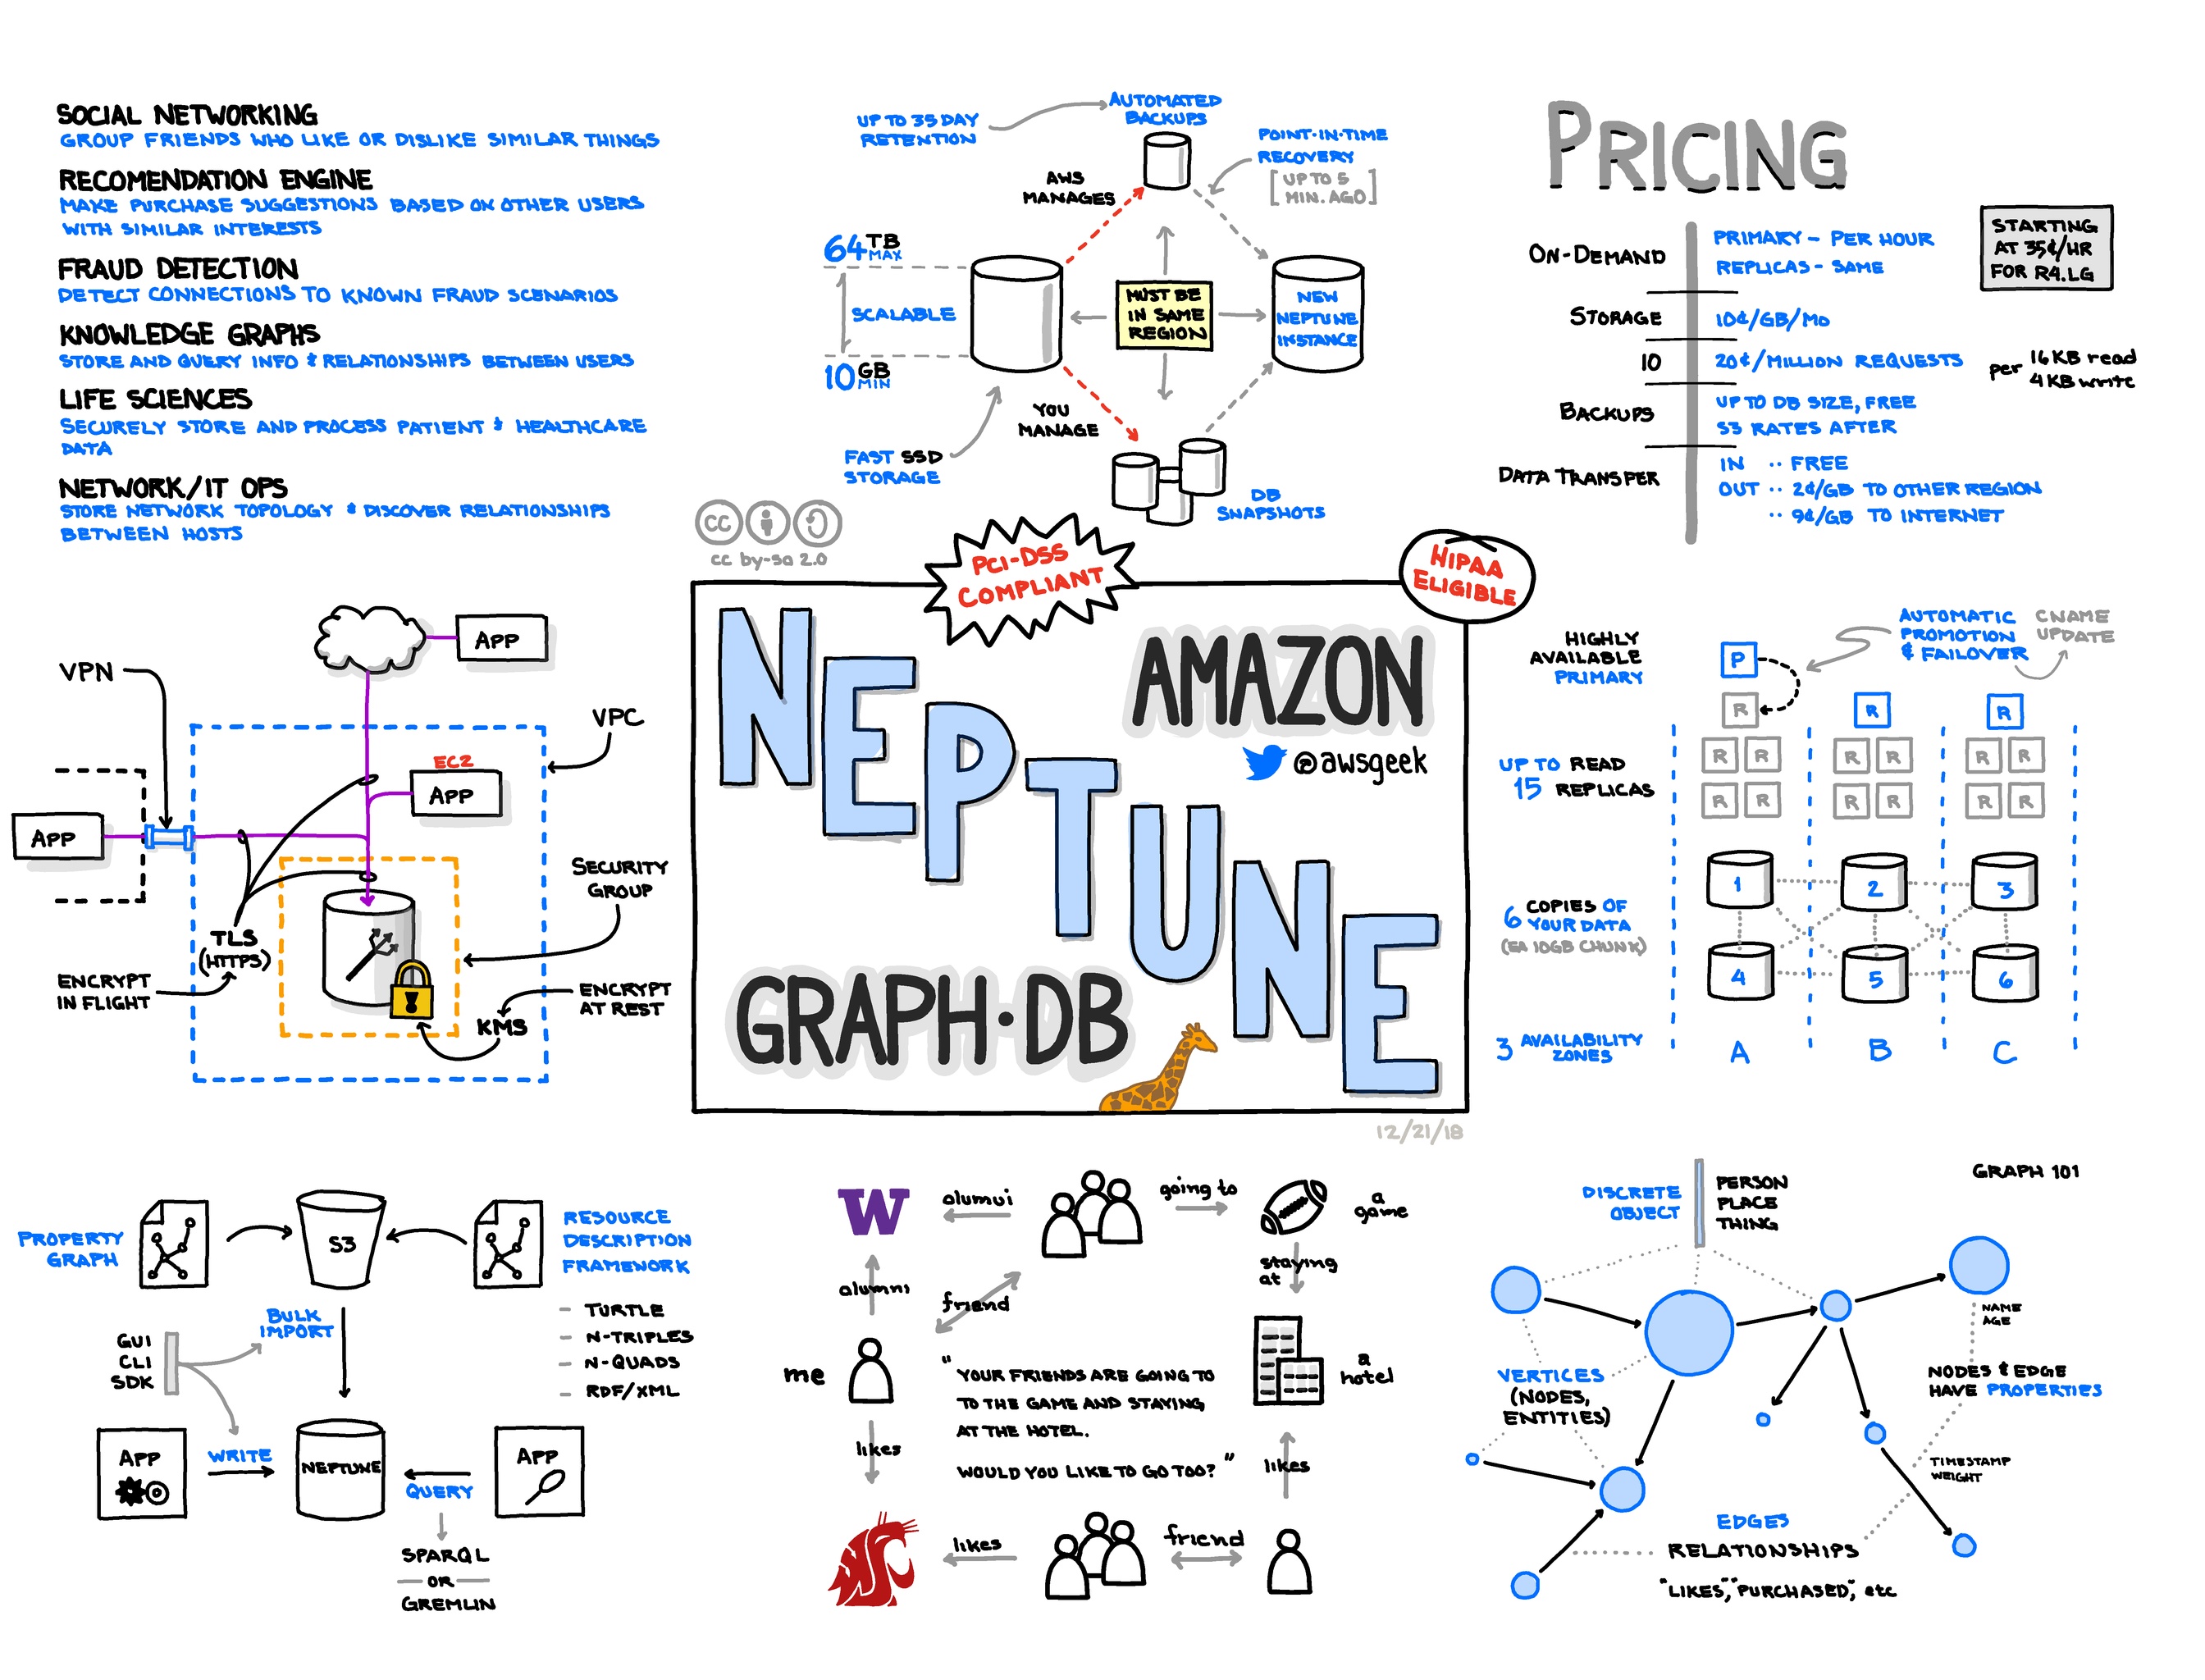 SOCIAL NETWORKING
GROUP FRIENDS WHO LIKE OR DISLIKE SIMILAR THINGS
RECOMENDATION ENGINE
MAKE PURCHASE SUGGESTIONS BASED ON OTHER USERS
WITH SIMILAR INTERESTS
FRAUD DETECTION
DETECT CONNECTIONS TO KNOWN FRAUD SCENARIOS
KNOWLEDGE GRAPHS
STORE AND QUERY INFO & RELATIONSHIPS BETWEEN USERS
LIFE SCIENCES
SECURELY STORE AND PROCESS PATIENT & HEALTHCARE
DATA
NETWORK/IT OPS
STORE NETWORK TOPOLOGY & DISCOVER RELATIONSHIPS
BETWEEN HOSTS
UP TO 35 DAY
RETENTION
AUTOMATED
BACKUPS
POINT-IN-TIME
RECOVERY
[UP TO 5
MIN. AGO]
AWS
MANAGES
64 TB
MAX
SCALABLE
10 GB
MIN
MUST BE
IN SAME
REGION
NEW
NEPTUNE
INSTANCE
YOU
MANAGE
FAST SSD
STORAGE
DB
SNAPSHOTS
PRICING
ON-DEMAND
PRIMARY - PER HOUR
REPLICAS - SAME
STARTING
AT 35¢/HR
FOR R4.LG
STORAGE
10¢/GB/MO
IO
20¢/MILLION REQUESTS
per 16KB read
4KB write
BACKUPS
UP TO DB SIZE, FREE
S3 RATES AFTER
DATA TRANSFER
IN .. FREE
OUT .. 2¢/GB TO OTHER REGION
.. 9¢/GB TO INTERNET
cc
cc by-sa 2.0
PCI-DSS
COMPLIANT
HIPAA
ELIGIBLE
AMAZON
NEPTUNE
@awsgeek
GRAPH·DB
12/21/18
APP
VPN
VPC
EC2
APP
APP
SECURITY
GROUP
TLS
(HTTPS)
ENCRYPT
IN FLIGHT
ENCRYPT
AT REST
KMS
HIGHLY
AVAILABLE
PRIMARY
P
AUTOMATIC
PROMOTION
& FAILOVER
CNAME
UPDATE
R R R
UP TO READ
15 REPLICAS
R R R R R R
R R R R R R
1 2 3
6 COPIES OF
YOUR DATA
(EA 10GB CHUNK)
4 5 6
3 AVAILABILITY
ZONES
A B C
PROPERTY
GRAPH
S3
RESOURCE
DESCRIPTION
FRAMEWORK
- TURTLE
- N-TRIPLES
- N-QUADS
- RDF/XML
BULK
IMPORT
GUI
CLI
SDK
APP
WRITE
NEPTUNE
QUERY
APP
SPARQL
- OR -
GREMLIN
W
alumui
going to
a
game
alumni
friend
staying
at
me
"YOUR FRIENDS ARE GOING TO
TO THE GAME AND STAYING
AT THE HOTEL.
WOULD YOU LIKE TO GO TOO?"
a
hotel
likes
likes
WSC
likes
friend
GRAPH 101
DISCRETE
OBJECT
PERSON
PLACE
THING
NAME
AGE
VERTICES
(NODES,
ENTITIES)
NODES & EDGE
HAVE PROPERTIES
TIMESTAMP
WEIGHT
EDGES
RELATIONSHIPS
"LIKES", "PURCHASED", etc